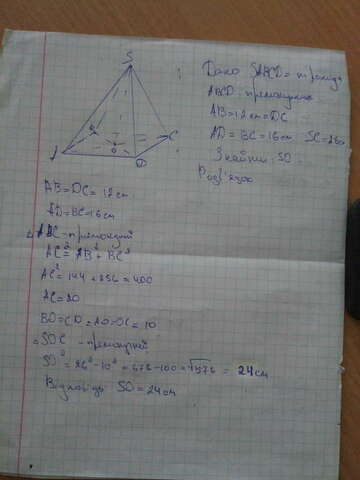 S
A
B
C
D
O
Дано SABCD - піраміда
ABCD - прямокутник
AB = 12 см = DC
AD = BC = 16 см SC = 26см
Знайти: SO -
Розв'язок
AB = DC = 12 см
AD = BC = 16 см
△ ABC - прямокутний
AC² = AB² + BC²
AC² = 144 + 256 = 400
AC = 20
BO = OD = AO = OC = 10
SOC - прямокутний
SO² = 26² - 10² = 676 - 100 = √576 = 24 см
Відповідь SO = 24 см